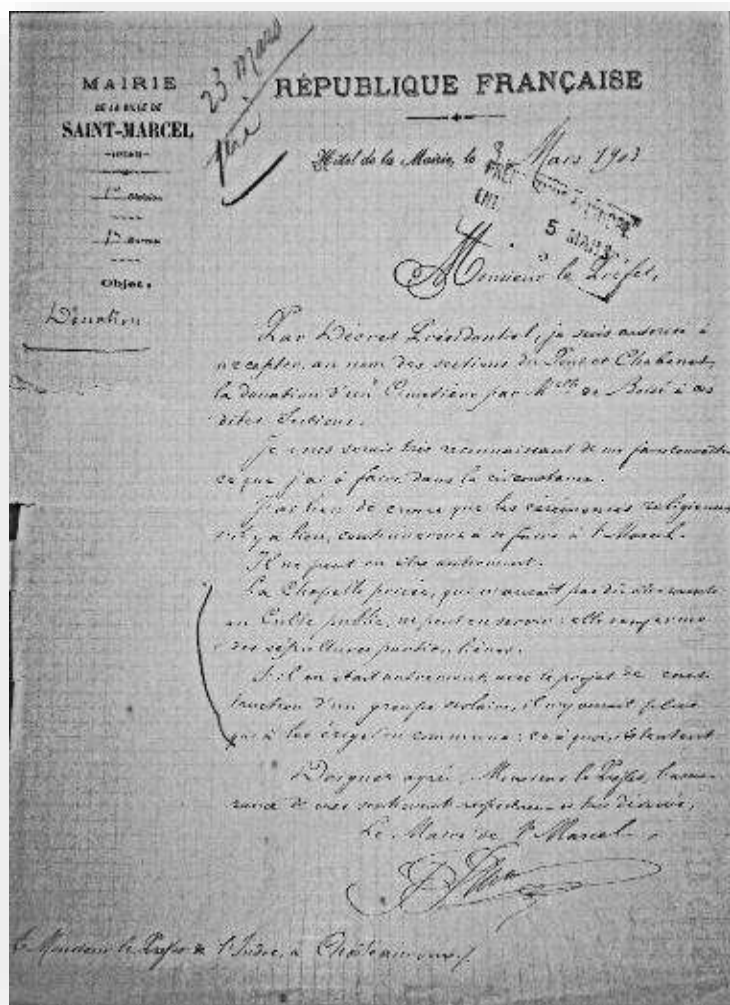 MAIRIE
DE LA VILLE DE
SAINT-MARCEL
Objet.
Donation
23 Mars
RÉPUBLIQUE FRANÇAISE
Hôtel de la Mairie, le 3 Mars 1903
5 MARS
Monsieur le Préfet,
Par Décret Présidentiel, je suis autorisé à
accepter, au nom des sections du Pont et Chabenet,
la donation d'un Cimetière par Mlle de Boisé à ces
dites Sections.
Je vous serais très reconnaissant de me faire connaître
ce que j'ai à faire dans la circonstance.
J'ai lieu de croire que les cérémonies religieuses
s'il y a lieu, continueront à se faire à St Marcel.
Il ne peut en être autrement.
La Chapelle privée, qui n'aurait pas dû être ouverte
au Culte public, ne peut en servir : elle renferme
des sépultures particulières.
S'il en était autrement, avec le projet de cons-
truction d'un groupe scolaire, il n'y aurait plus
qu'à les ériger en commune : ce à quoi
Daignez agréer, Monsieur le Préfet, l'assu-
rance de mes sentiments respectueux et très dévoués,
Le Maire de St Marcel
Monsieur le Préfet de l'Indre, à Châteauroux